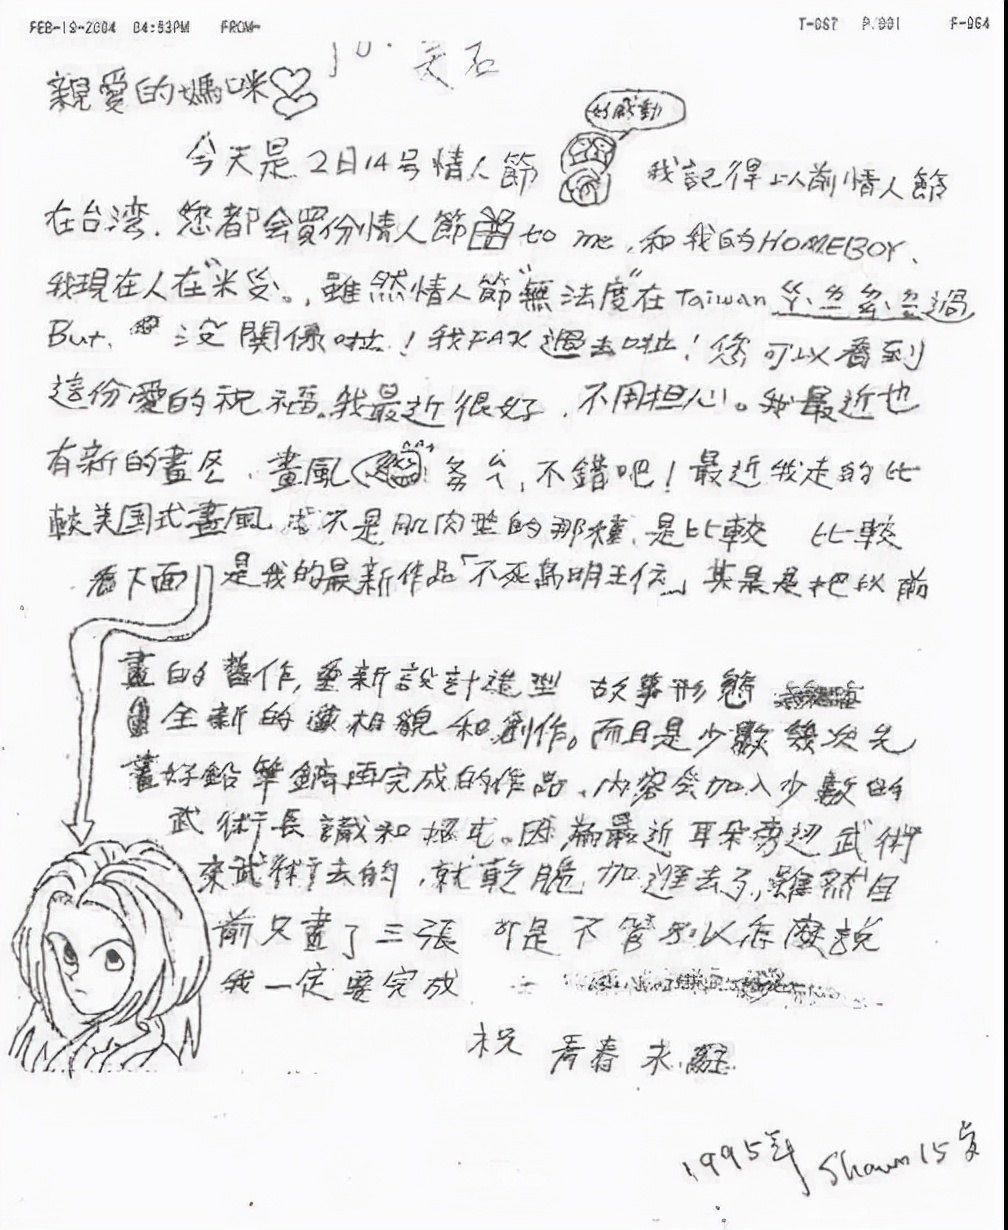 FEB-19-2004 04:53PM FROM- T-067 P.001 F-064
親愛的媽咪
好感動
今天是2日14号情人節 我記得以前情人節
在台湾.您都会買份情人節 to me,和我的HOMEBOY、
我現在人在"米". 雖然情人節"無法度"在Taiwan ㄠˋㄌㄤˊ過
But, 沒關係啦!我FAX過去啦!您可以看到
這份愛的祝福.我最近很好,不用担心。我最近也
有新的畫 、畫風 多 ,不錯吧!最近我走的比
較美国式畫風 不是肌肉型的那種,是比較 比較
看下面 是我的最新作品「不死鳥明王伝」其是把以前
畫的舊作,重新設計造型 故事形態
全新的 相貌和創作。而且是少數幾次先
畫好鉛筆 再完成的作品、內容会加入少數的
武術 識和招式。因為最近耳朵旁边武術
來武術去的,就乾脆加進去了,雖然目
前只畫了三張 可是不管 以怎麼說
我一定要完成
祝 青春永駐
1995年 Shawn 15歲